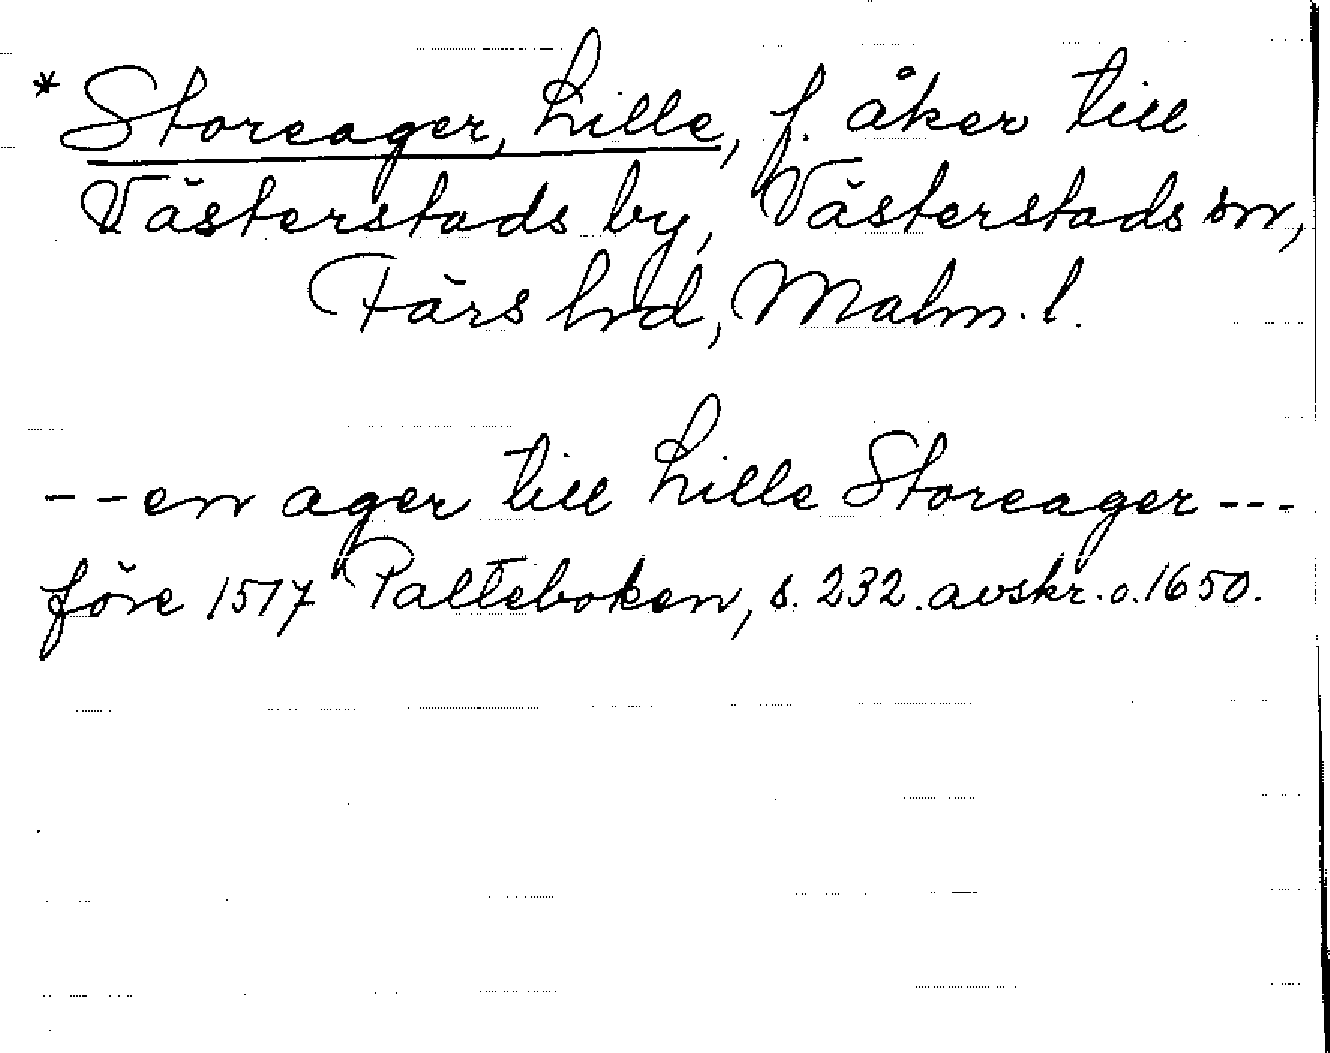 * Storeager, Lille, f. åker till
Västerstads by, Västerstads sn,
Färs hd, Malm. l.
- - en ager till Lille Storeager - - -
före 1517 Palteboken, s. 232. avskr. o. 1650.